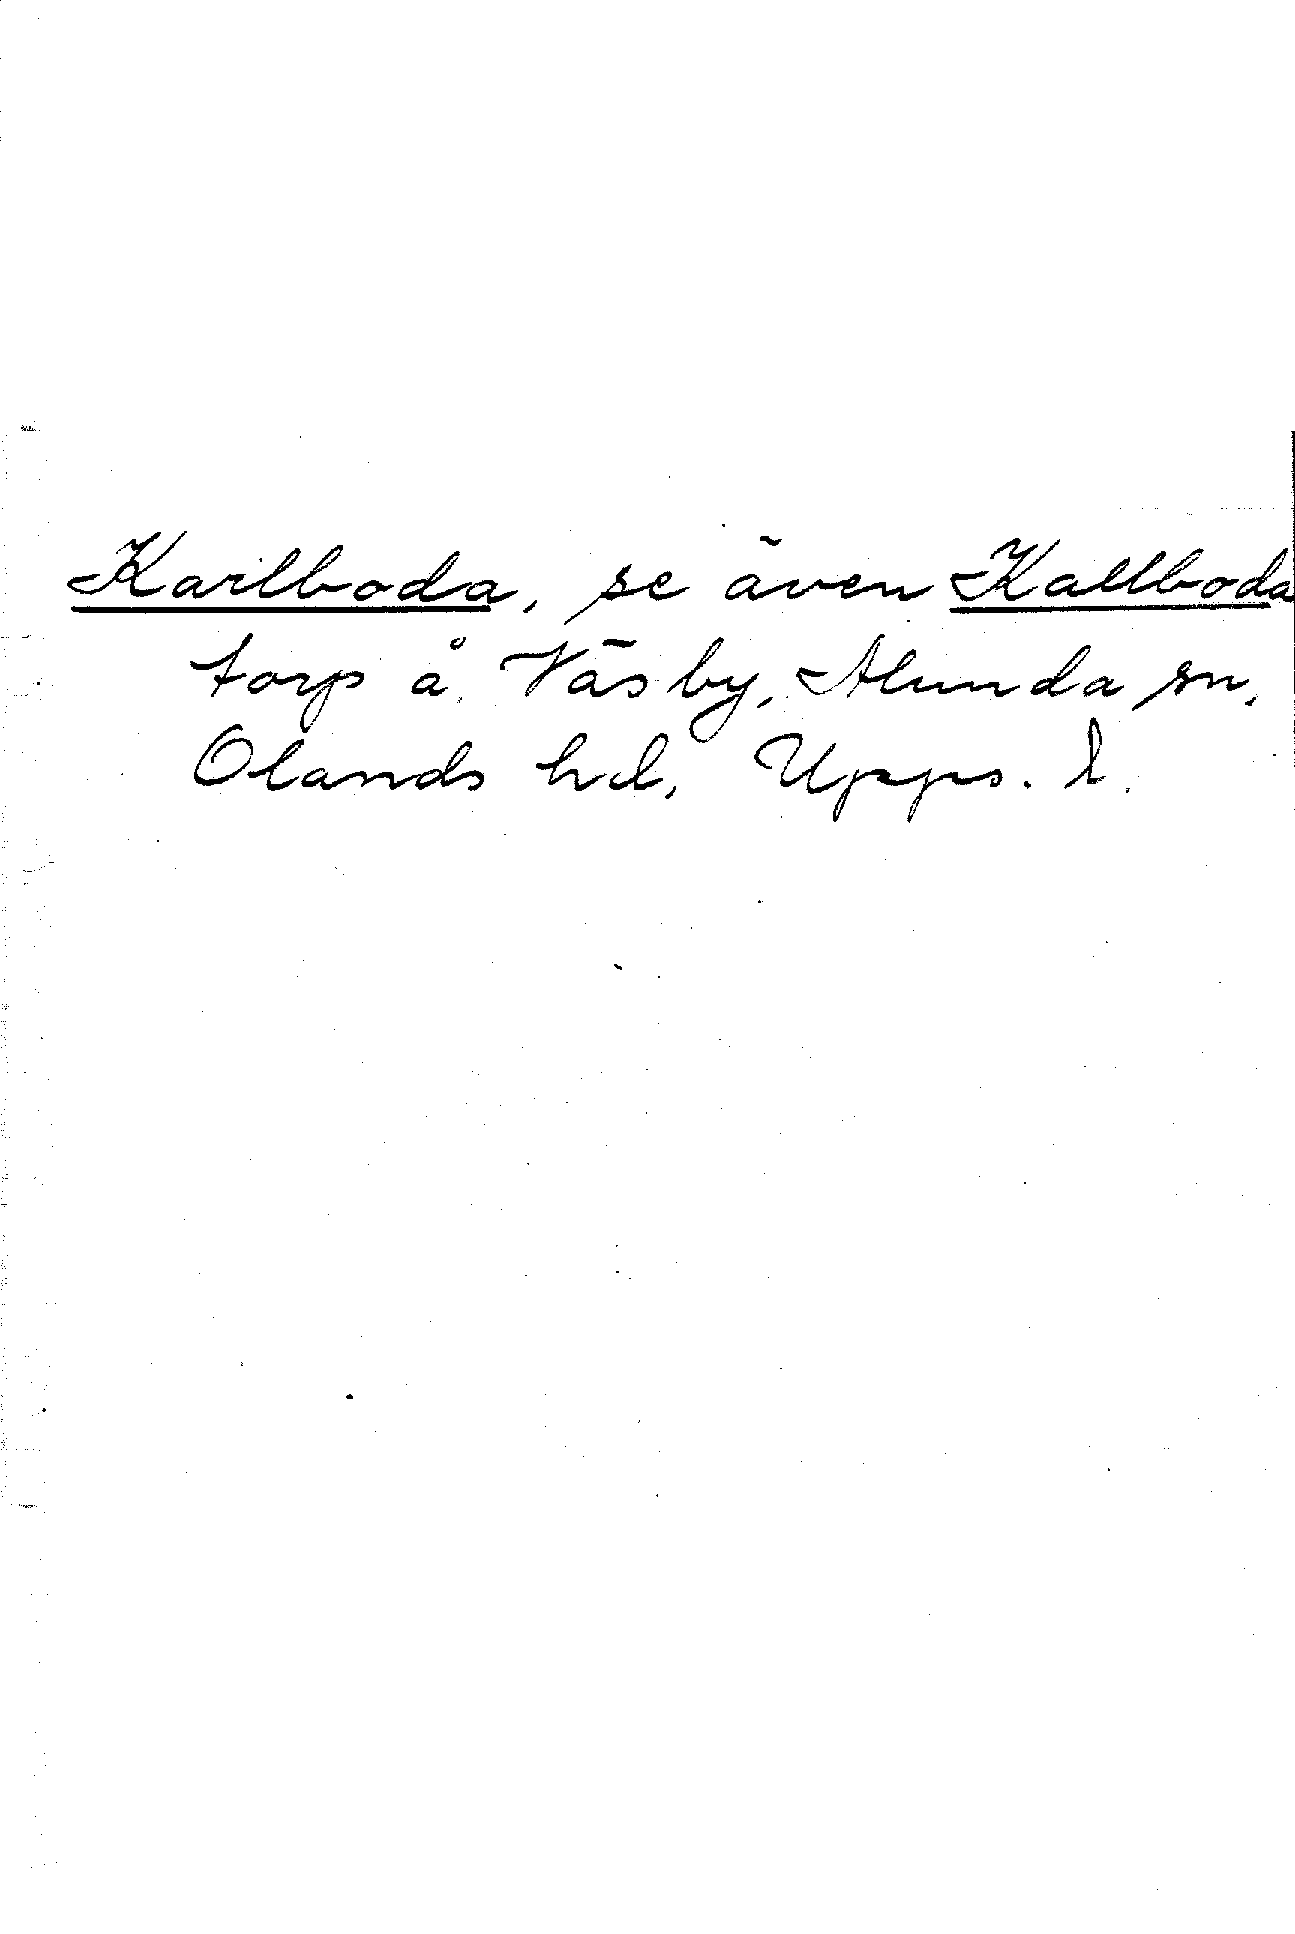 Karlboda, se även Kallboda
torp å Väsby, Alunda sn,
Olands hd, Upps. l.